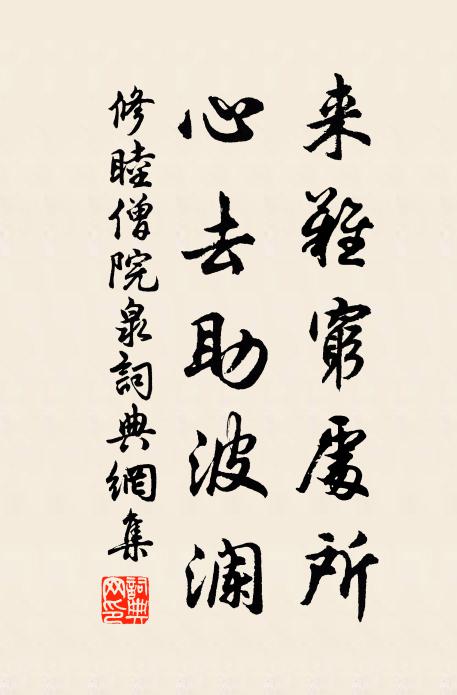 来難窮處所
心去助波澜
修睦僧院泉詞典網集
詞典网印